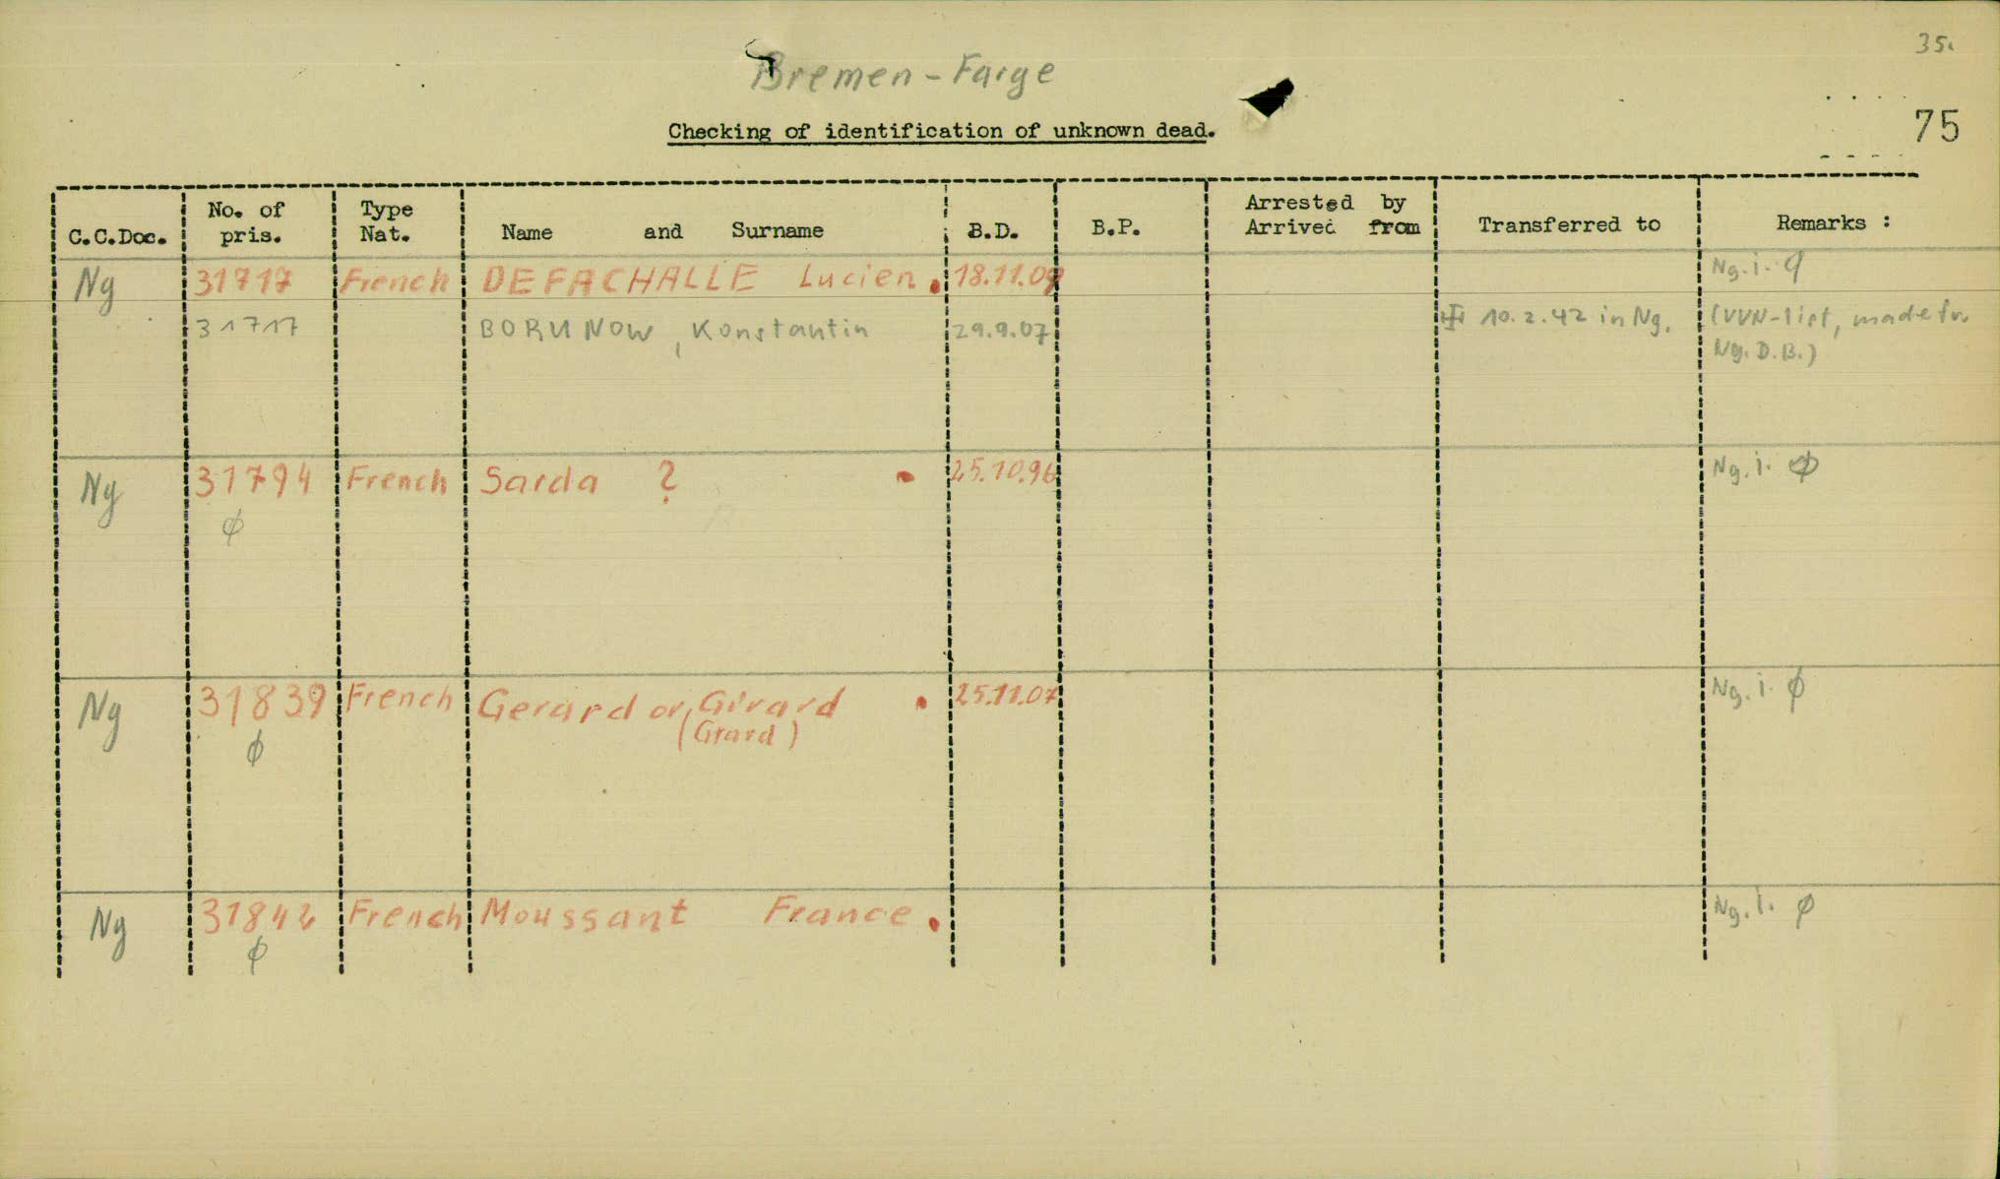 35.
Bremen-Farge
Checking of identification of unknown dead.
75
C.C.Doc. No. of pris. Type Nat. Name and Surname B.D. B.P. Arrested by Arrived from Transferred to Remarks :
Ng 31717 French DEFACHALLE Lucien. 18.11.09 Ng. i.
31717 BORUNOW, Konstantin 29.9.07 10.2.42 in Ng. (VVN-list, made for
Ng. D.B.)
Ng 31794 French Sarda ? 25.10.96 Ng. i. ϕ
ϕ
Ng 31839 French Gerard or Girard 25.11.07 Ng. i. ϕ
ϕ (Grard)
Ng 31842 French Moussant France. Ng. i. ϕ
ϕ